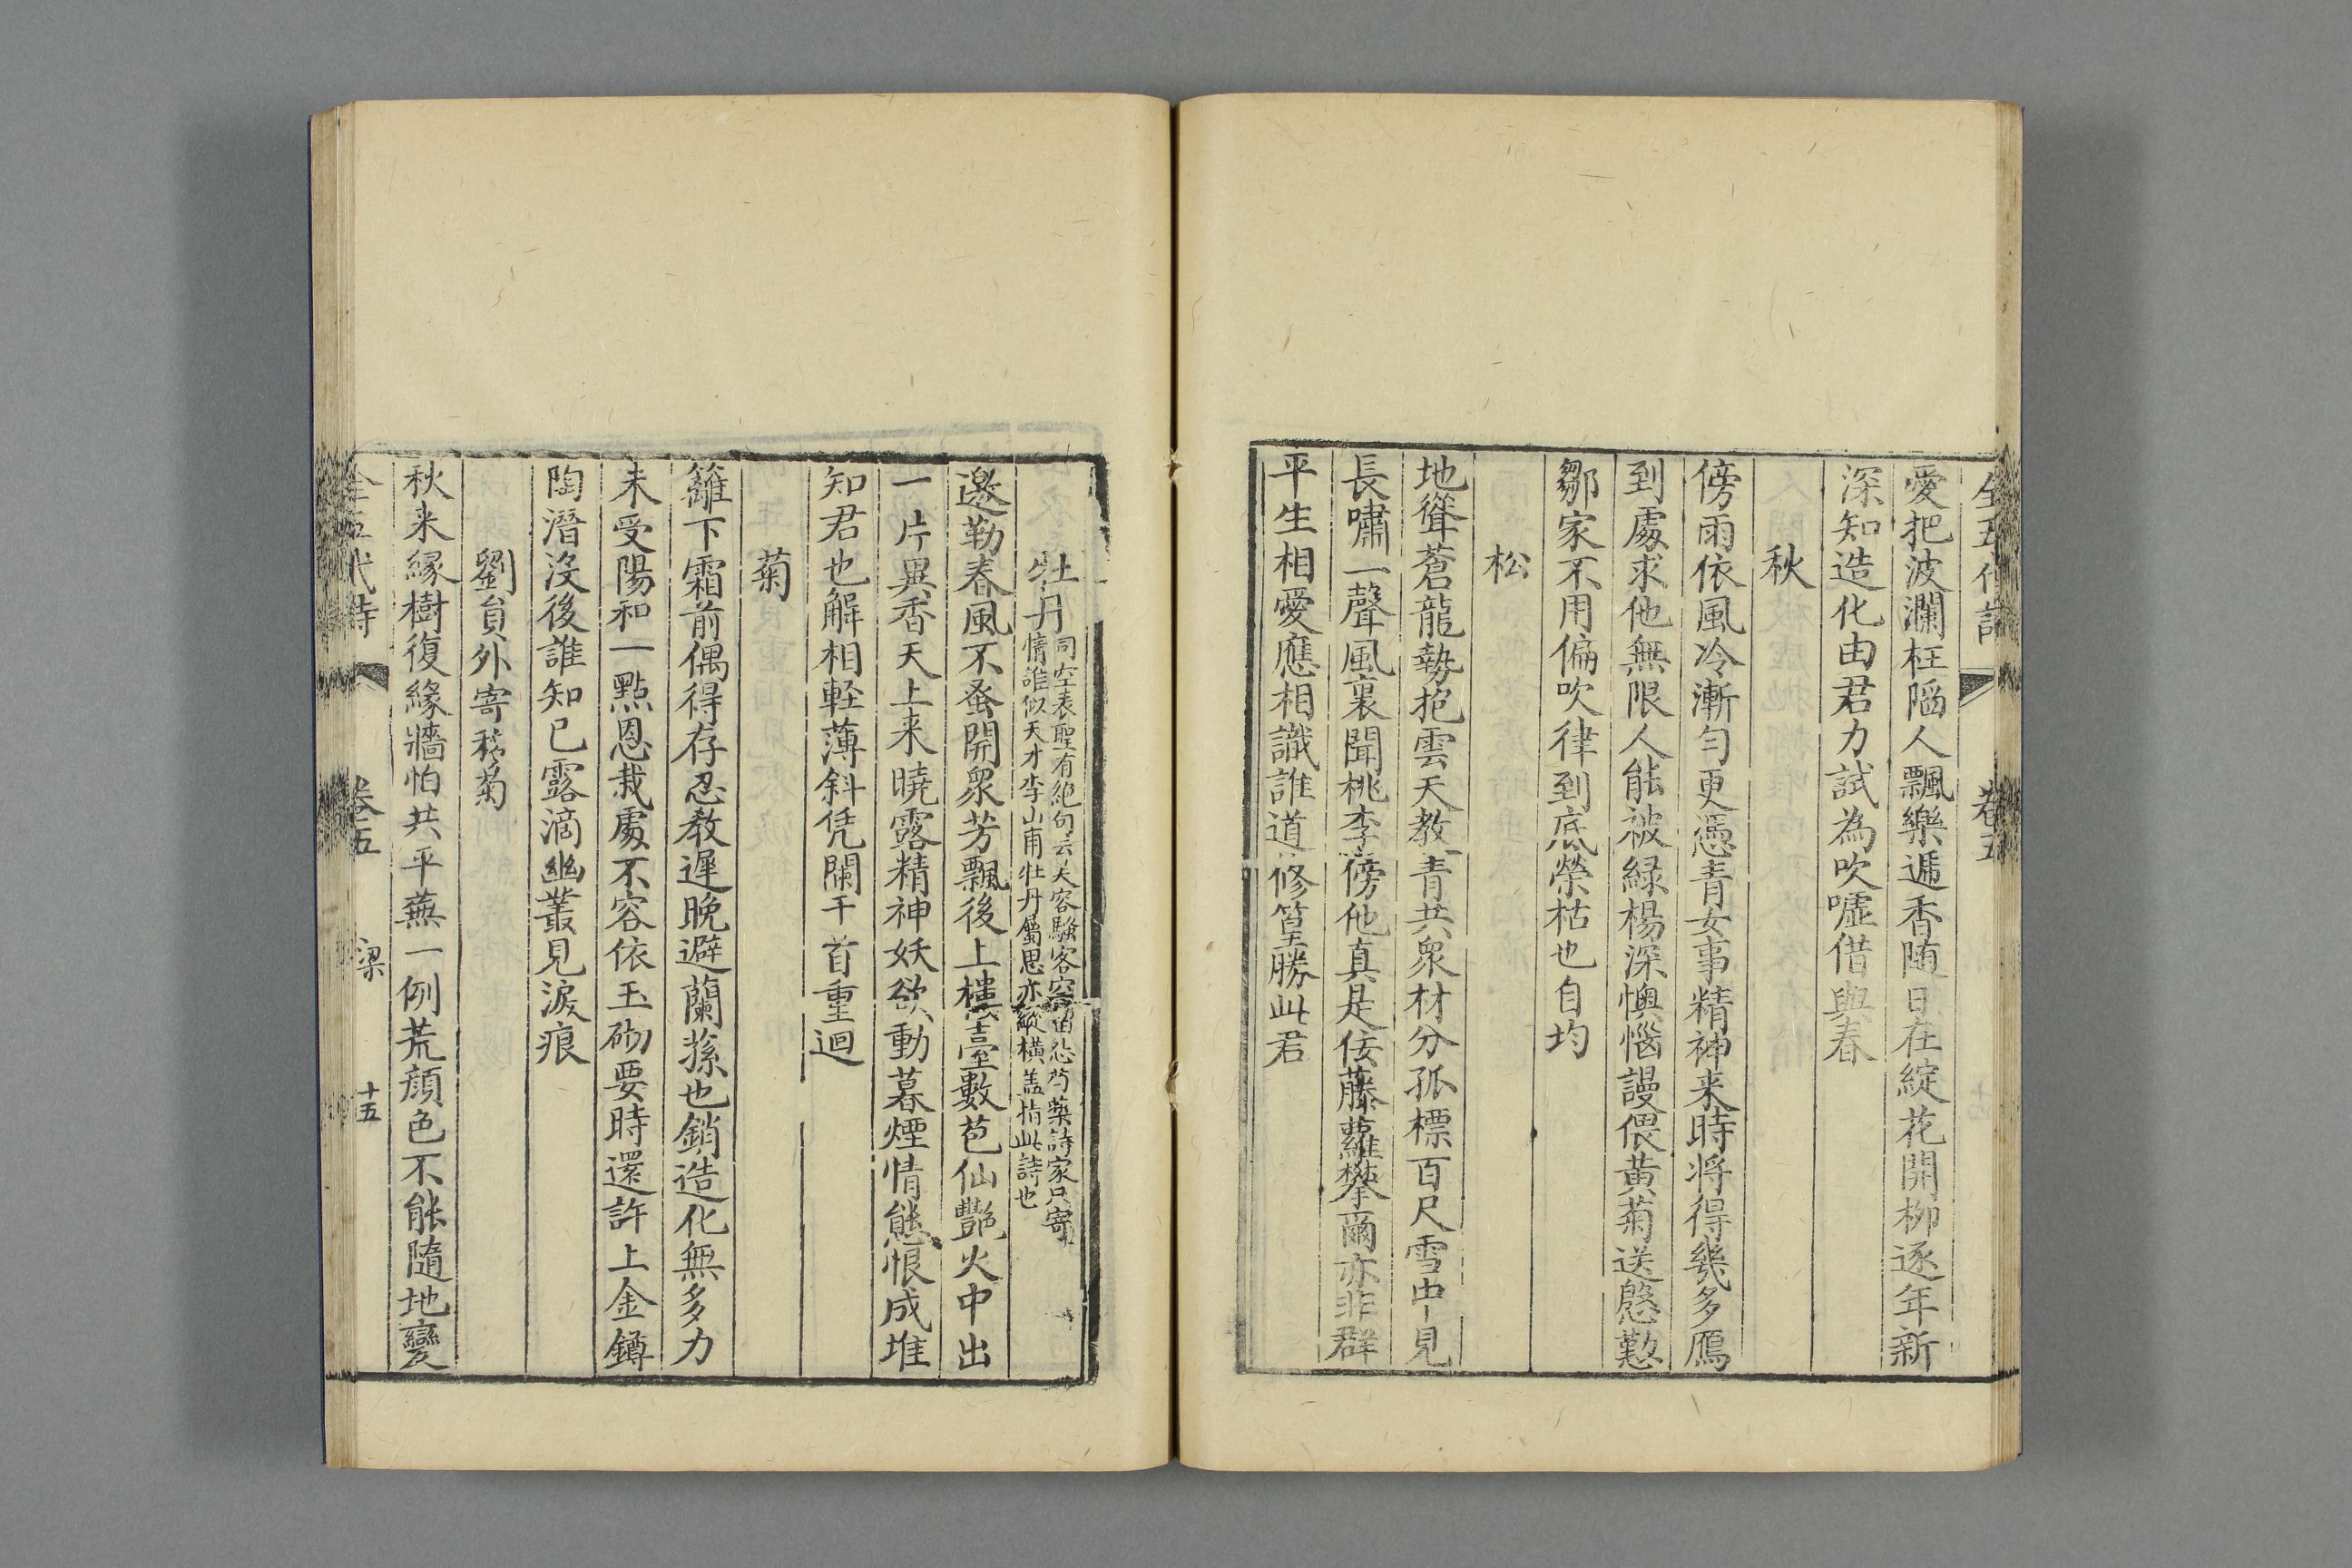 全五代詩 卷五
愛把波瀾枉陷人飄樂遞香随日在綻花開柳逐年新
深知造化由君力試為吹噓借與春
秋
傍雨依風冷漸勻更憑青女事精神来時将得幾多鴈
到處求他無限人能被綠楊深懊惱謾偎黄菊送慇懃
鄒家不用偏吹律到底榮枯也自均
松
地聳蒼龍勢抱雲天教青共衆材分孤標百尺雪中見
長嘯一聲風裏聞桃李傍他真是佞藤蘿攀爾亦非群
平生相愛應相識誰道修篁勝此君
牡丹
司空表聖有絶句云芙容騷客空留怨芍藥詩家只寄
情誰似天才李山甫牡丹屬思亦縱橫盖指此詩也
邀勒春風不蚤開衆芳飄後上樓臺數苞仙艷火中出
一片異香天上来曉露精神妖欲動暮煙情態恨成堆
知君也解相軽薄斜凭闌干首重迴
菊
籬下霜前偶得存忍教遲晚避蘭蓀也銷造化無多力
未受陽和一點恩栽處不容依玉砌要時還許上金鐏
陶潛沒後誰知己露滴幽叢見淚痕
劉員外寄移菊
秋来緣樹復緣牆怕共平蕪一例荒顔色不能隨地變
全五代詩 卷五 梁 十五